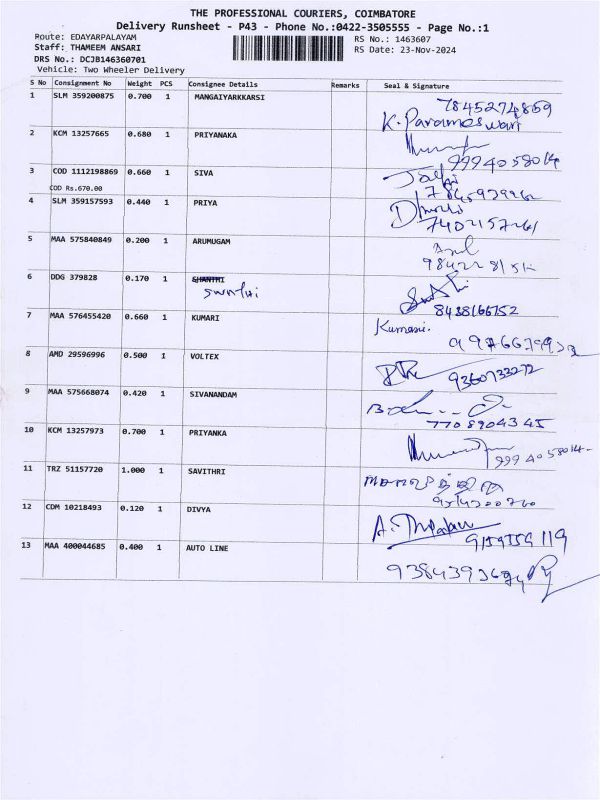 THE PROFESSIONAL COURIERS, COIMBATORE
Delivery Runsheet - P43 - Phone No.:0422-3505555 - Page No.:1
Route: EDAYARPALAYAM
RS No.: 1463607
Staff: THAMEEM ANSARI
RS Date: 23-Nov-2024
DRS No.: DCJB146360701
Vehicle: Two Wheeler Delivery
S No Consignment No Weight PCS Consignee Details Remarks Seal & Signature
1 SLM 359200875 0.700 1 MANGAIYARKKARSI 7845274859
K. Parameswari
2 KCM 13257665 0.680 1 PRIYANAKA
9994058014
3 COD 1112198869 0.660 1 SIVA
COD Rs.670.00
4 SLM 359157593 0.440 1 PRIYA
5 MAA 575840849 0.200 1 ARUMUGAM
6 DDG 379828 0.170 1 SHANTHI
Swathi
8438166752
7 MAA 576455420 0.660 1 KUMARI Kumari.
8 AMD 29596996 0.500 1 VOLTEX 9360733272
9 MAA 575668074 0.420 1 SIVANANDAM
7708904345
10 KCM 13257973 0.700 1 PRIYANKA
9994058014
11 TRZ 51157720 1.000 1 SAVITHRI
12 CDM 10218493 0.120 1 DIVYA
9159159119
13 MAA 400044685 0.400 1 AUTO LINE